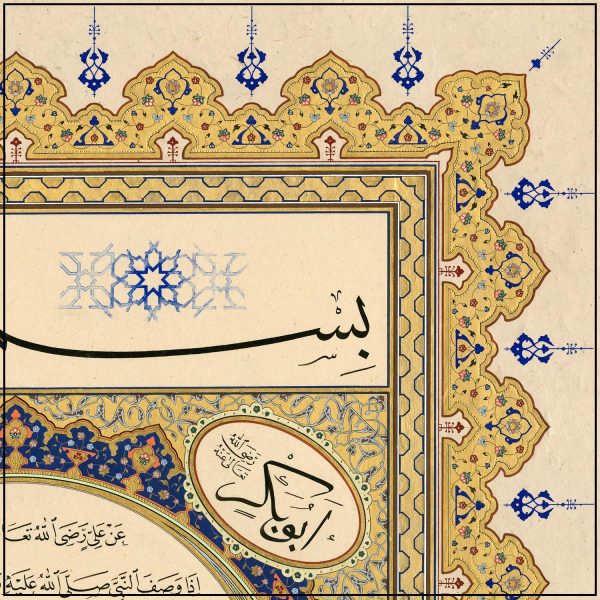 بِسْم
ابُوبَكْر
رَضِيَ ٱللّٰه
تَعَالٰى عَنْهُ
عَنْ عَلِيٍّ رَضِيَ ٱللّٰهُ تَعَا
إِذَا وَصَفَ ٱلنَّبِيَّ صَلَّى ٱللّٰهُ عَلَيْهِ